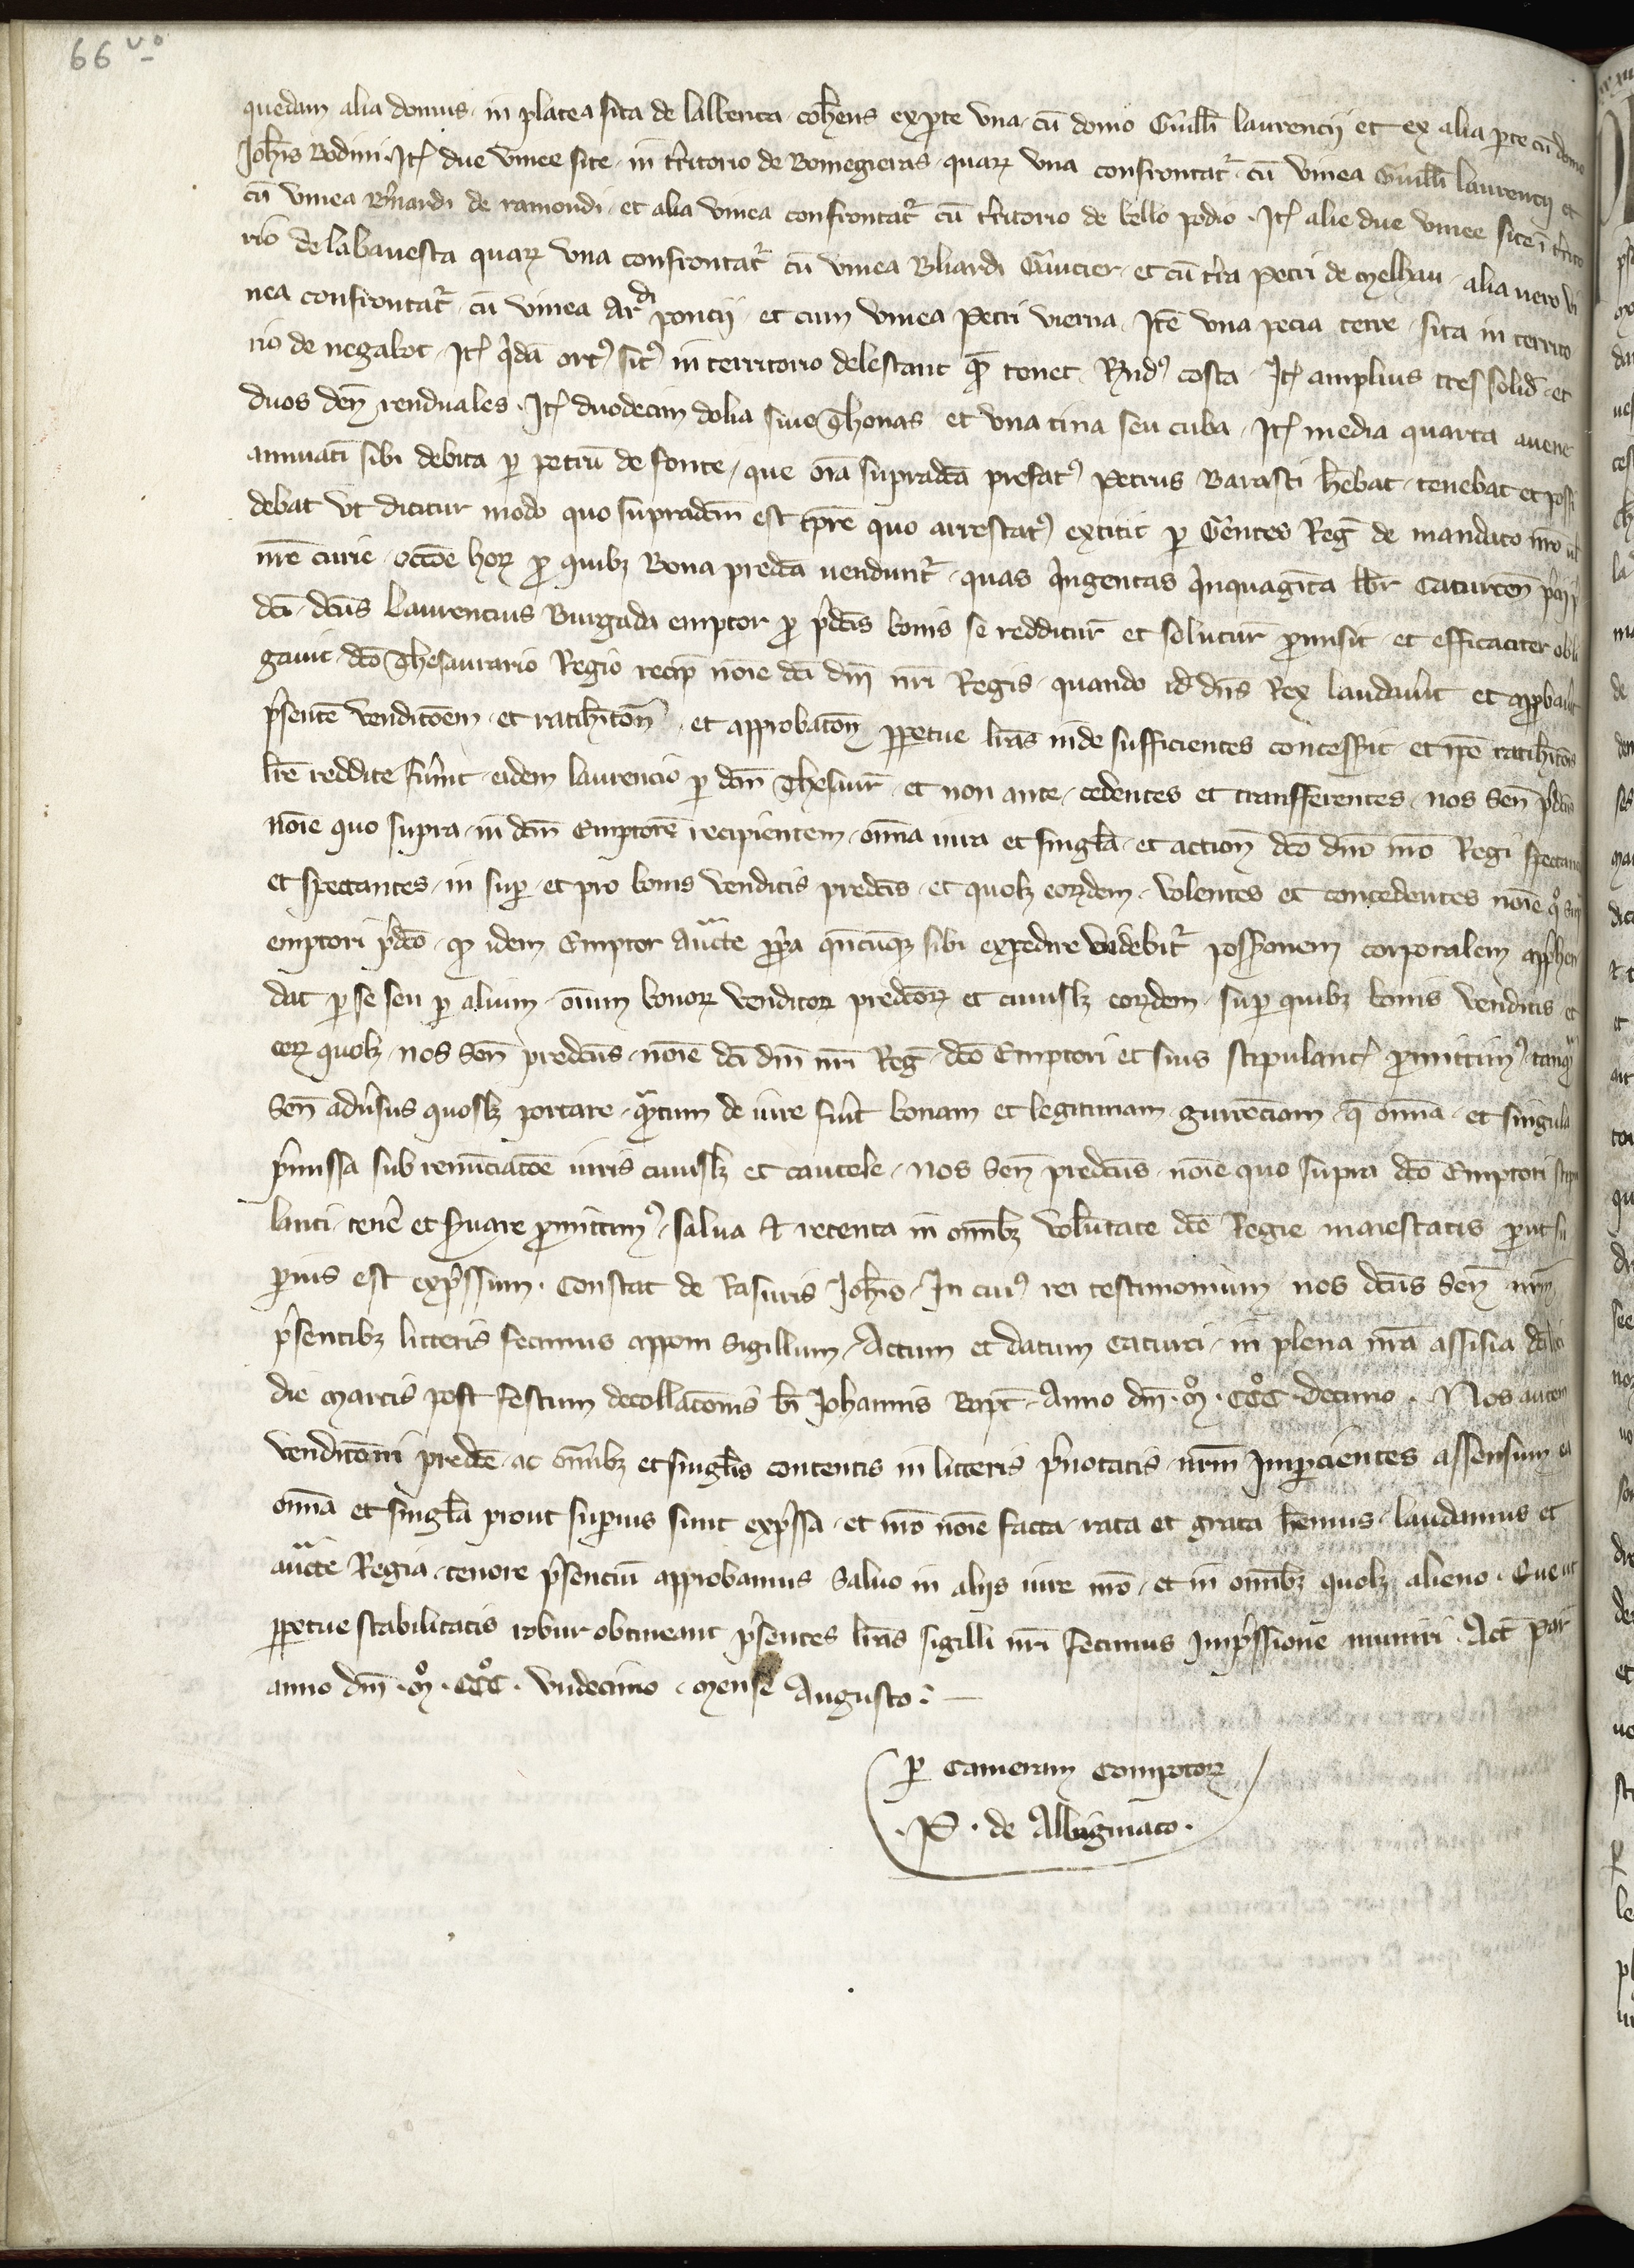 66 vo
quedam alia domus in platea sita de lalbenca coh̄ens ex p̱te vna cū domo Guill̄i laurencij et ex alia p̱te cū domo
Joh̄is Bodini Itē due vinee site in t̄ritorio de quaꝝ vna confrontat᷑ cū vinea Guill̄i laurencij et
cū vinea B̄nardi de ramondi et alia vinea confrontat᷑ cū t̄ritorio de bello podio Itē alie due vinee site ī t̄rito
rio de labauesta quaꝝ vna confrontat᷑ cū vinea et cū t̄ra Petri de Melhau alia uero vi
nea confrontat᷑ cū vinea Ar̄di poncij et cum vinea Petri vierna Itē vna pecia terre sita in territo
rio de negalbot Itē q̄dā ortꝰ sitꝰ in territorio delestanc quē tenet R̄ndꝰ costa Itē amplius tres solid̄ et
duos den̄ renduales Itē duodecim dolia siue Thonas et vna tina seu cuba Itē media quarta auene
annuatī sibi debita ꝑ petrū de fonte que om̄ia supradc̄a prefatꝰ Petrus Barasti h̄ebat tenebat et possi
debat vt dicitur modo quo supradc̄m est tp̄re quo arrestatꝰ extitit ꝑ Gentes Reḡ de mandato nr̄o vl̄
nr̄e curie occ̄one hoꝝ ꝓ quibꝫ Bona predc̄a uendunt᷑ quas q̄ngentas q̄nquaginta lib̄r Caturcen̄ p̄cij p̄
dc̄i dc̄us Laurencius Burgada emptor ꝓ p̄dc̄is bonis se redditur̄ et solutur̄ ꝓmisit et efficaciter obli
gauit dc̄o Thesaurario Regio recip̄ noīe dc̄i dn̄i nr̄i Regis quando id̄ dn̄s Rex laudaūit et app̱baūit
p̄sentē venditōem et ratih̄itōn̄ et approbatōn̄ ꝑpetue lr̄as inde sufficientes concess̄it et ip̄e ratih̄itōis
lr̄e reddite fūint eidem laurencio ꝑ dc̄m Thesaur̄ et non ante cedentes et transfferentes nos Sen̄ p̄dc̄us
noīe quo supra in dc̄m Emptorē recipientem om̄ia iura et singl̄a et action̄ dc̄o dn̄o nr̄o Regi spectancia
et spectantes in sup̱ et pro bonis venditis predc̄is et quolꝫ eoꝝdem volentes et concedentes noīe quo sup̱
emptori p̄dc̄o ꝙ idem Emptor auc̄te ꝓp̄a qn̄cūqꝫ sibi expedire videbit᷑ poss̄ionem corporalem app̄hen
dat ꝑ se seu ꝑ alium oīum bonoꝝ venditoꝝ predc̄oꝝ et cuiuslꝫ eoꝝdem sup̱ quibꝫ bonis venditis et
eoꝝ quolꝫ nos Sen̄ predc̄us noīe dc̄i dn̄i nr̄i Reḡ dc̄o Emptori et suis stipulantē ꝓmittimꝰ tanq̄
Sen̄ adūsus quoslꝫ portare q̄tum de iure fūit bonam et legitimam guirenciam q̄ om̄ia et singula
p̄missa sub renūciac̄oe iuris cuiuslꝫ et cautele nos Sen̄ predc̄us noīe quo supra dc̄o Emptori stipu
lanti tenēe et s̄uare ꝓmittimꝰ salua et retenta in om̄ibꝫ volūtate dc̄e Regie maiestatis ꝓut su
p̱ius est exp̄ssum Constat de Rasuris Joh̄is In cuiꝰ rei testimonium nos dc̄us Sen̄ nr̄m
p̄sentibꝫ litteris fecimus apponi Sigillum Actum et datum Caturci in plena nr̄a assisia
die Martis post festum decollac̄onis b̄i Johannis Bapt̄ Anno dn̄i M̊ CCC̊ Decimo Nos autem
venditōni predc̄e ac om̄ibꝫ et singl̄is contentis in litteris p̄notatis nr̄m Imp̱cientes assensum ea
om̄ia et singl̄a prout sup̱ius sunt exp̄ssa et nr̄o noīe facta rata et grata h̄emus laudamus et
auc̄te Regia tenore p̄senciū approbamus Saluo in alijs iure nr̄o et in om̄ibꝫ quolꝫ alieno Que ut
ꝑpetue stabilitatis robur obtineant p̄sentes lr̄as sigilli nr̄i fecimus Imp̄ssione muniri Act̄ Par̄
anno dn̄i M̊ CCC̊ vndecimo Mense Augusto
ꝑ Cameram Compotoꝝ
P de Albigniaco